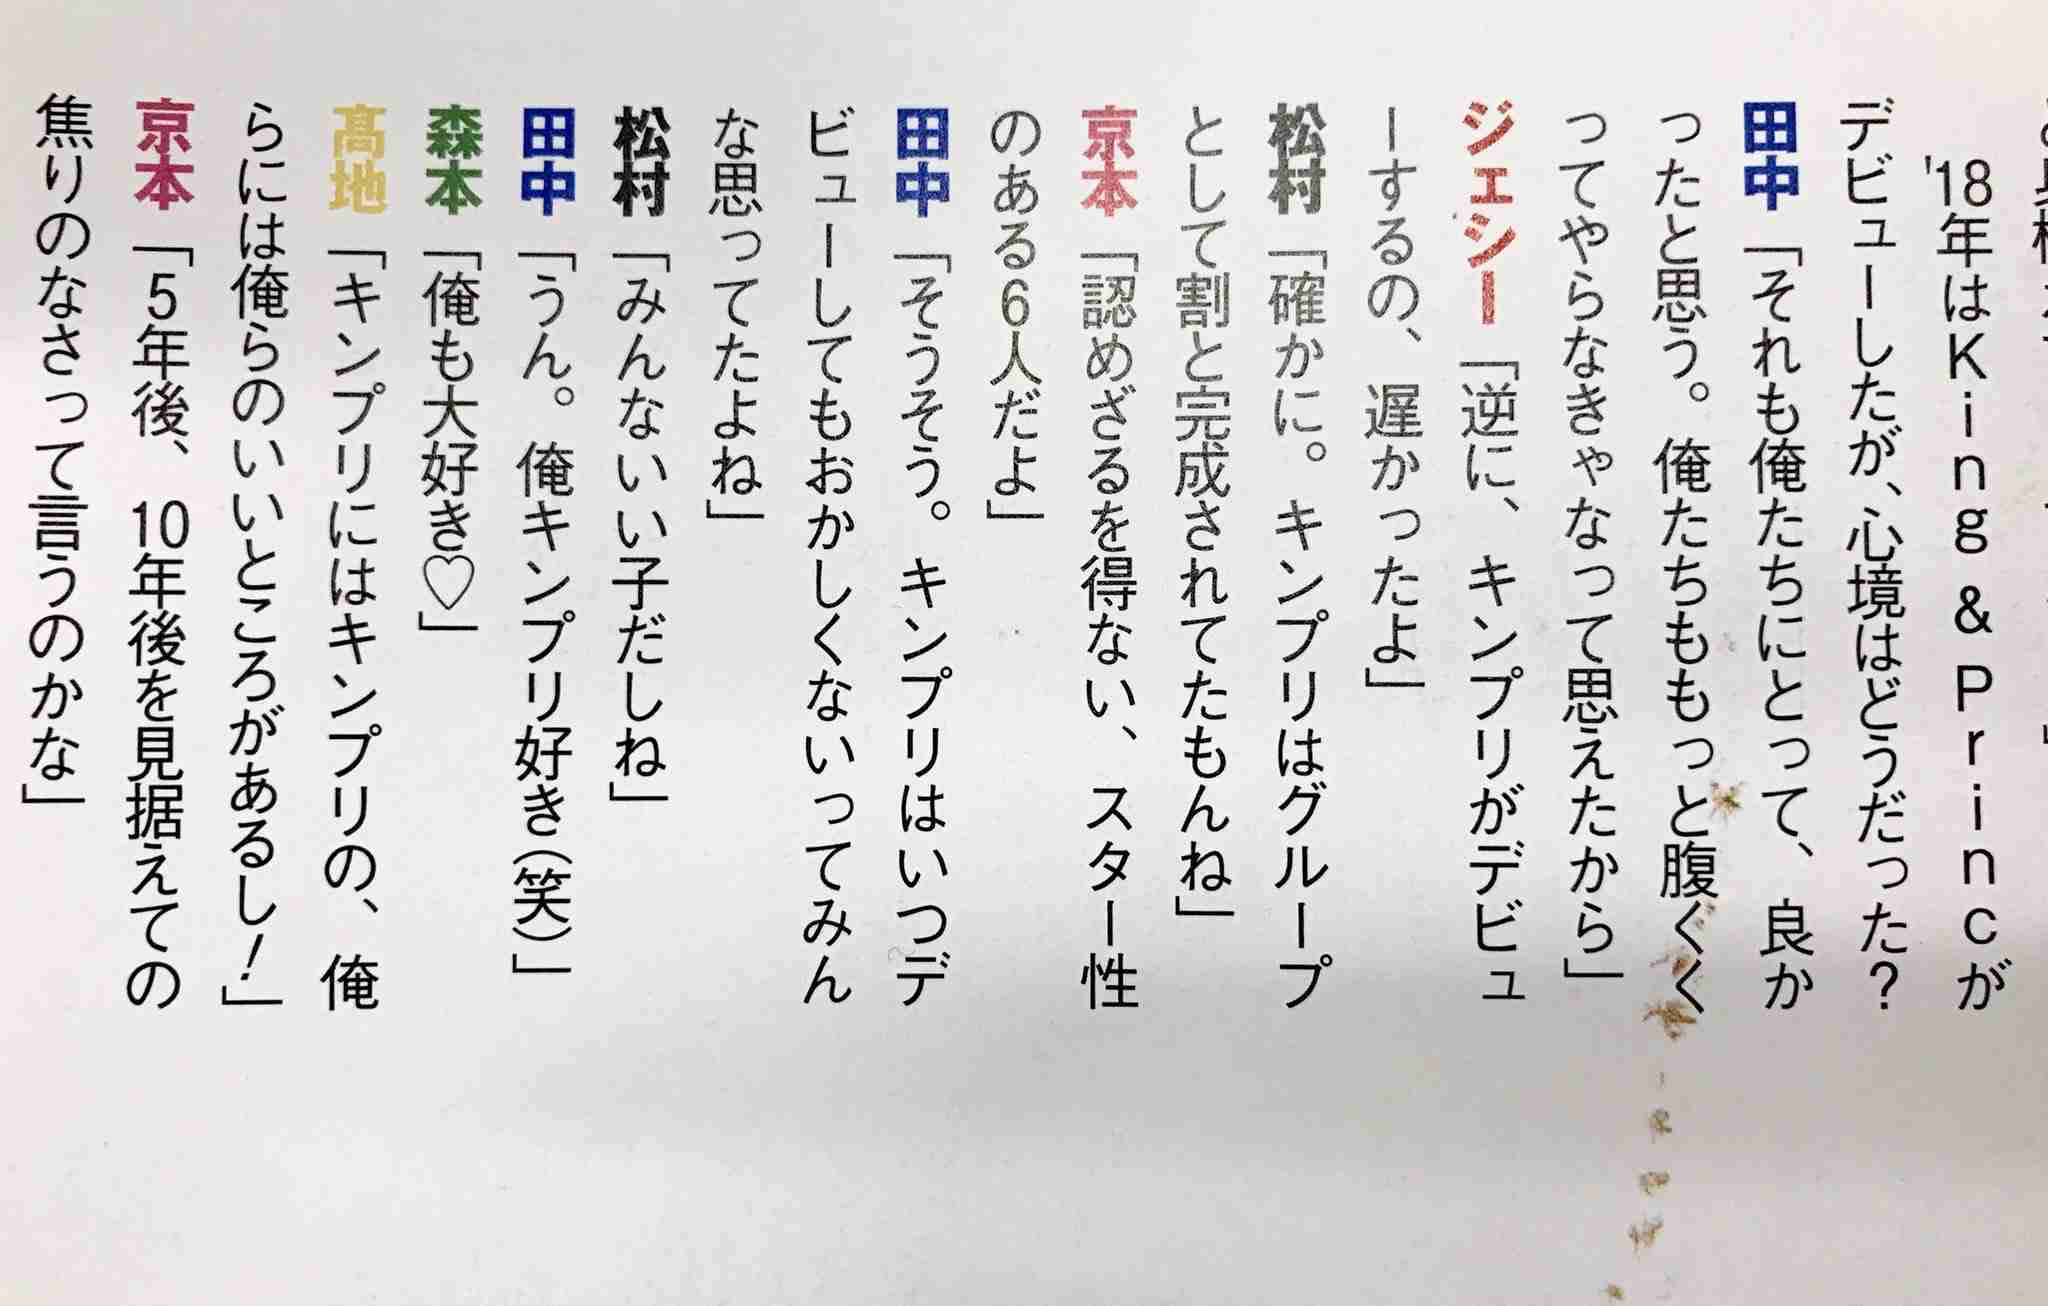 '18年はKing&Princが
デビューしたが、心境はどうだった?
田中「それも俺たちにとって、良か
ったと思う。俺たちももっと腹くく
ってやらなきゃなって思えたから」
ジェシー「逆に、キンプリがデビュ
ーするの、遅かったよ」
松村「確かに。キンプリはグループ
として割と完成されてたもんね」
京本「認めざるを得ない、スター性
のある6人だよ」
田中「そうそう。キンプリはいつデ
ビューしてもおかしくないってみん
な思ってたよね」
松村「みんないい子だしね」
田中「うん。俺キンプリ好き(笑)」
森本「俺も大好き♡」
髙地「キンプリにはキンプリの、俺
らには俺らのいいところがあるし!」
京本「5年後、10年後を見据えての
焦りのなさって言うのかな」